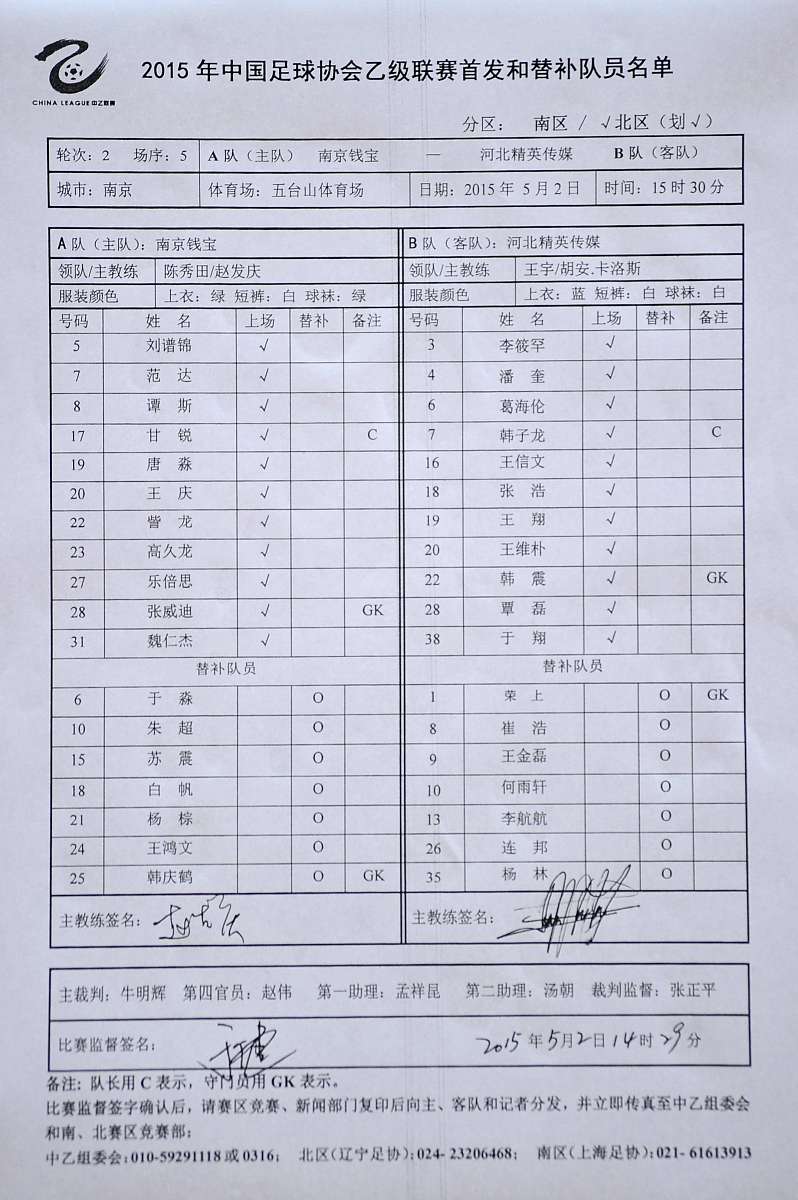 CHINA LEAGUE 中乙联赛
2015 年中国足球协会乙级联赛首发和替补队员名单
分区： 南区 / √北区（划√）
轮次：2 场序：5 A 队（主队） 南京钱宝 — 河北精英传媒 B 队（客队）
城市：南京 体育场：五台山体育场 日期：2015 年 5 月 2 日 时间：15 时 30 分
A 队（主队）：南京钱宝 B 队（客队）：河北精英传媒
领队/主教练 陈秀田/赵发庆 领队/主教练 王宇/胡安.卡洛斯
服装颜色 上衣：绿 短裤：白 球袜：绿 服装颜色 上衣：蓝 短裤：白 球袜：白
号码 姓 名 上场 替补 备注 号码 姓 名 上场 替补 备注
5 刘谱锦 √ 3 李筱罕 √
7 范 达 √ 4 潘 奎 √
8 谭 斯 √ 6 葛海伦 √
17 甘 锐 √ C 7 韩子龙 √ C
19 唐 淼 √ 16 王信文 √
20 王 庆 √ 18 张 浩 √
22 訾 龙 √ 19 王 翔 √
23 高久龙 √ 20 王维朴 √
27 乐倍思 √ 22 韩 震 √ GK
28 张威迪 √ GK 28 覃 磊 √
31 魏仁杰 √ 38 于 翔 √
替补队员 替补队员
6 于 淼 O 1 荣 上 O GK
10 朱 超 O 8 崔 浩 O
15 苏 震 O 9 王金磊 O
18 白 帆 O 10 何雨轩 O
21 杨 棕 O 13 李航航 O
24 王鸿文 O 26 连 邦 O
25 韩庆鹤 O GK 35 杨 林 O
主教练签名： 赵发庆 主教练签名：
主裁判：牛明辉 第四官员：赵伟 第一助理：孟祥昆 第二助理：汤朝 裁判监督：张正平
比赛监督签名： 2015 年 5 月 2 日 14 时 29 分
备注: 队长用 C 表示，守门员用 GK 表示。
比赛监督签字确认后，请赛区竞赛、新闻部门复印后向主、客队和记者分发，并立即传真至中乙组委会
和南、北赛区竞赛部:
中乙组委会: 010-59291118 或 0316; 北区(辽宁足协): 024- 23206468; 南区(上海足协): 021- 61613913